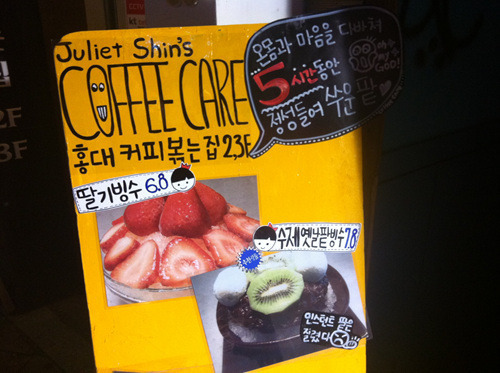 Juliet Shin's
COFFEE CARE
홍대 커피 볶는 집 2,3F
온몸과 마음을 다바쳐
5시간동안
정성들여 쑤운 팥
GOOD!
딸기빙수 6.8
수제 옛날팥빙수 7.8
인스턴트 팥은
질렸다
2F
3F